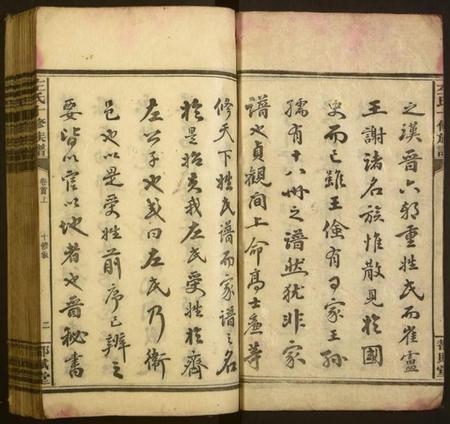 之漢晉六朝重姓氏而崔盧
王謝諸名族惟散見於國
史而已雖王儉有百家王孫
孺有十八州之譜然猶非家
譜也貞觀間上命高士廉等
修天下姓氏譜而家譜之名
於是始真我左氏受姓於齊
左公子也或曰左氏乃衛
邑也以是受姓前序已辨之
要皆以官以地者也晉秘書
左氏十修族譜
卷首上
十修叙
二
都賦堂